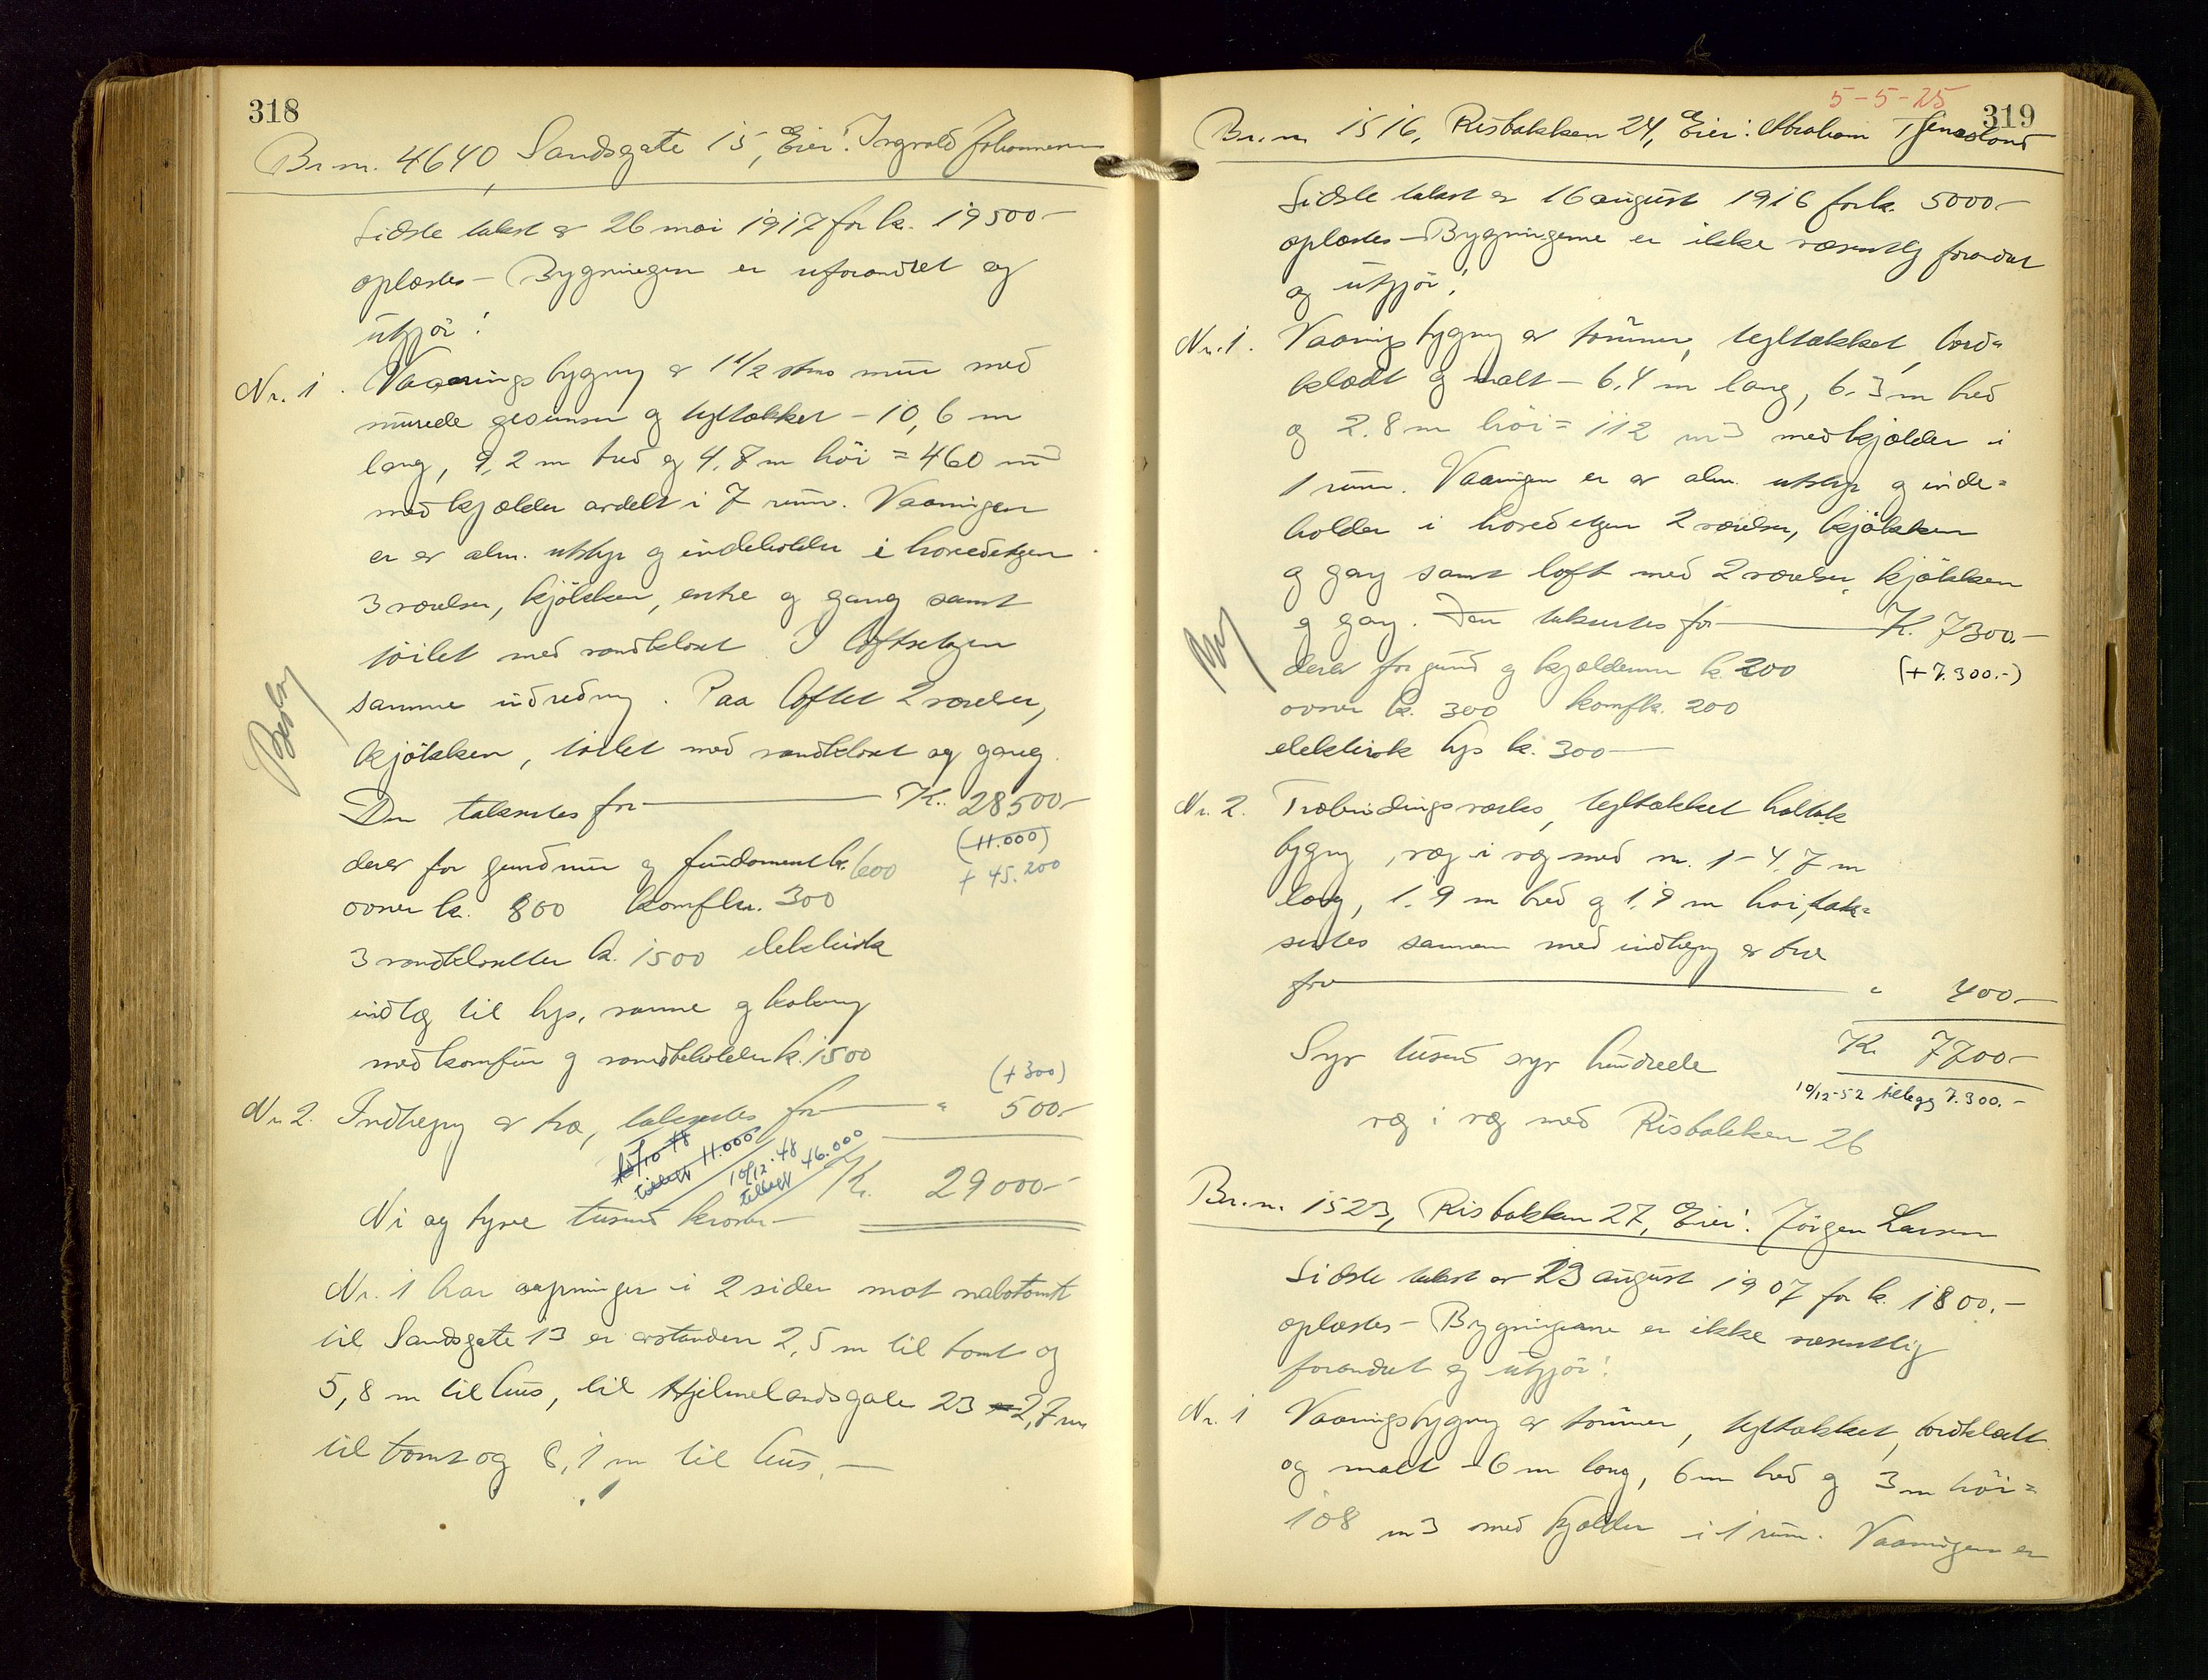 318
Br.nr. 4640, Sandsgate 15, Eier: Ingvald Johannesen
Sidste takst er 26 mai 1917 for k. 19500-
oplæstes - Bygningen er uforandret og
utgjør:
Nr. 1. Vaaningsbygning er 1 1/2 etas mur med
murede gesimser og tegltækket - 10,6 m
lang, 9,2 m bred og 4,8 m höi = 460 m3
med kjælder avdelt i 7 rum. Vaaningen
er av alm. utstyr og indeholder i hovedetagen
3 værelser, kjökken, entre og gang samt
toilet med vandklosset I loftsetagen
samme indredning. Paa loftet 2 værelser,
kjökken, toilet med vandkloset og gang.
Den takseres for - K. 28500-
(11.000)
derav for grundmur og fundament k. 600
+ 45.200
ovner k. 800 komf kr. 300
3 vandklosetter k. 1500 elektrisk
indlæg til lys, varme og kokning
med komfur og vandbeholder k. 1500
(+300)
Nr. 2. Indhegning av træ, takseres for - " 500.-
10/12-48
tillegg 46.000
tillegg 11.000
K. 29000-
Ni og tyve tusend kroner -
Nr. 1 har aapninger i 2 sider mot nabotomt
til Sandsgate 13 er avstanden 2,5 m til tomt og
5,8 m til hus, til Hjelmelandsgate 23 2,7 m
til tomt og 8,1 m til hus. -
5-5-25
319
Br.nr. 1516, Risbakken 24, Eier: Abraham
Sidste takst er 16 august 1916 for k. 5000.-
oplæstes - Bygningerne er ikke væsentlig forandret
og utgjör:
Nr. 1. Vaaningsbygning av tömmer, tegltækket, bord=
klædt og malt - 6,4 m lang, 6.3 m bred
og 2.8 m höi = 112 m3 med kjælder i
1 rum. Vaaningen er av alm. utstyr og inde=
holder i hovedetagen 2 værelser, kjökken
og gang samt loft med 2 værelser, kjökken
og gang. Den takseres for - K. 7300.-
derav for grund og kjældermur k. 200
(+7.300.-)
ovner k. 300 komf k. 200
elektrisk lys k. 300 -
Nr. 2. Træbindingsverks, tegltækket halvtak
bygning, væg i væg med nr. 1 - 4,7 m
lang, 1.9 m bred og 1.9 m höi, tak=
seres sammen med indhegning av træ
for - " 400.-
Syv tusend syv hundrede K. 7700.-
10/12-52 tillegg 7.300.-
væg i væg med Risbakken 26
Br.nr. 1523, Risbakken 27, Eier: Jörgen Larsen
Sidste takst er 23 august 1907 for k. 1800.-
oplæstes - Bygningerne er ikke væsentlig
forandret og utgjör:
Nr. 1 Vaaningsbygning av tömmer, tegltækket, bordklædt
og malt - 6 m lang, 6 m bred og 3 m höi =
108 m3 med kjælder i 1 rum. Vaaningen er